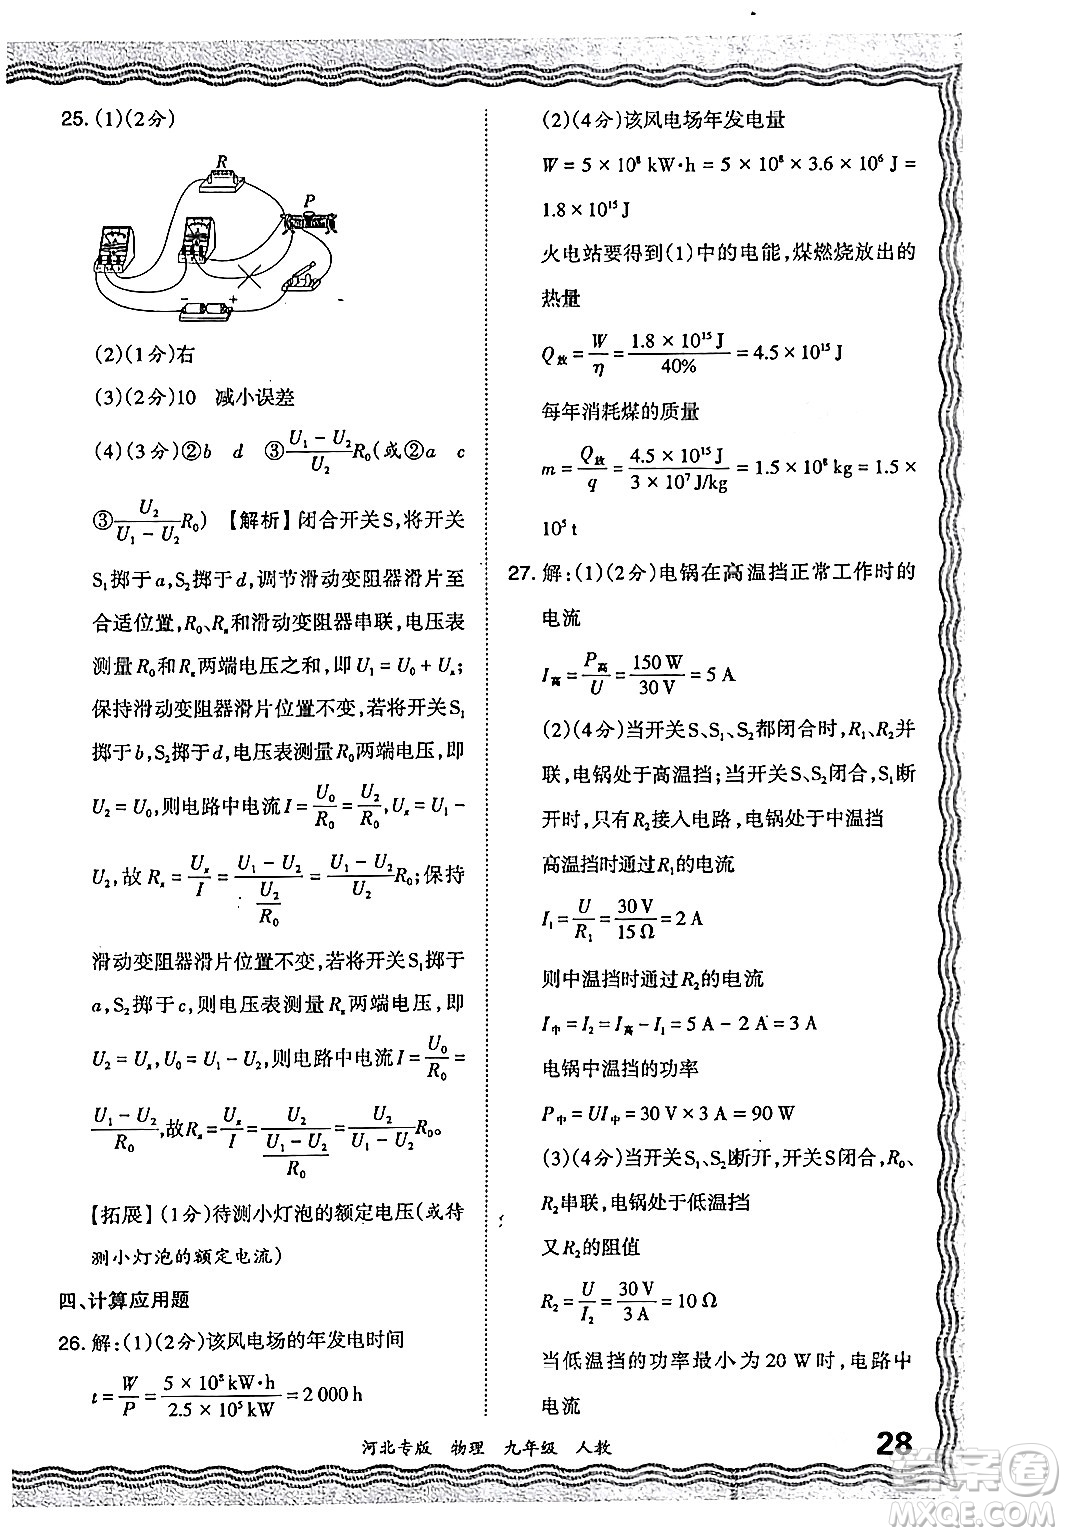 25. (1)(2分)
R
P
− +
(2)(1分)右
(3)(2分)10 减小误差
(4)(3分)②b d ③(U₁−U₂)/U₂ R₀(或②a c
③U₂/(U₁−U₂) R₀) 【解析】闭合开关S,将开关
S₁掷于a,S₂掷于d,调节滑动变阻器滑片至
合适位置,R₀、Rₓ和滑动变阻器串联,电压表
测量R₀和Rₓ两端电压之和,即U₁=U₀+Uₓ;
保持滑动变阻器滑片位置不变,若将开关S₁
掷于b,S₂掷于d,电压表测量R₀两端电压,即
U₂=U₀,则电路中电流I=U₀/R₀=U₂/R₀,Uₓ=U₁−
U₂,故Rₓ=Uₓ/I=(U₁−U₂)/(U₂/R₀)=(U₁−U₂)/U₂ R₀;保持
滑动变阻器滑片位置不变,若将开关S₁掷于
a,S₂掷于c,则电压表测量Rₓ两端电压,即
U₂=Uₓ,U₀=U₁−U₂,则电路中电流I=U₀/R₀=
(U₁−U₂)/R₀,故Rₓ=Uₓ/I=U₂/((U₁−U₂)/R₀)=U₂/(U₁−U₂) R₀。
【拓展】(1分)待测小灯泡的额定电压(或待
测小灯泡的额定电流)
四、计算应用题
26. 解:(1)(2分)该风电场的年发电时间
t=W/P=(5×10⁸kW·h)/(2.5×10⁵kW)=2 000 h
(2)(4分)该风电场年发电量
W=5×10⁸ kW·h=5×10⁸×3.6×10⁶ J=
1.8×10¹⁵J
火电站要得到(1)中的电能,煤燃烧放出的
热量
Q放=W/η=(1.8×10¹⁵J)/40%=4.5×10¹⁵J
每年消耗煤的质量
m=Q放/q=(4.5×10¹⁵J)/(3×10⁷J/kg)=1.5×10⁸kg=1.5×
10⁵t
27. 解:(1)(2分)电锅在高温挡正常工作时的
电流
I高=P高/U=150 W/30 V=5 A
(2)(4分)当开关S、S₁、S₂都闭合时,R₁、R₂并
联,电锅处于高温挡;当开关S、S₂闭合,S₁断
开时,只有R₂接入电路,电锅处于中温挡
高温挡时通过R₁的电流
I₁=U/R₁=30 V/15 Ω=2 A
则中温挡时通过R₂的电流
I中=I₂=I高−I₁=5 A−2 A=3 A
电锅中温挡的功率
P中=UI中=30 V×3 A=90 W
(3)(4分)当开关S₁、S₂断开,开关S闭合,R₀、
R₂串联,电锅处于低温挡
又R₂的阻值
R₂=U/I₂=30 V/3 A=10 Ω
当低温挡的功率最小为20 W时,电路中
电流
河北专版 物理 九年级 人教
28
答案圈
MXQE.COM